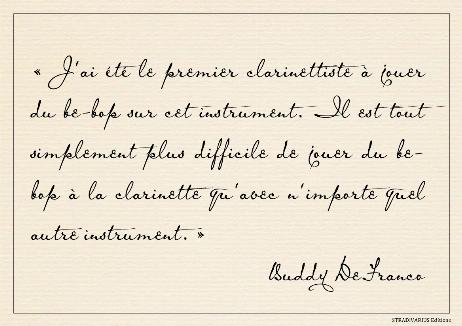 « J'ai été le premier clarinettiste à jouer
du be-bop sur cet instrument. Il est tout
simplement plus difficile de jouer du be-
bop à la clarinette qu'avec n'importe quel
autre instrument. »
Buddy DeFranco
STRADIVARIUS Editions